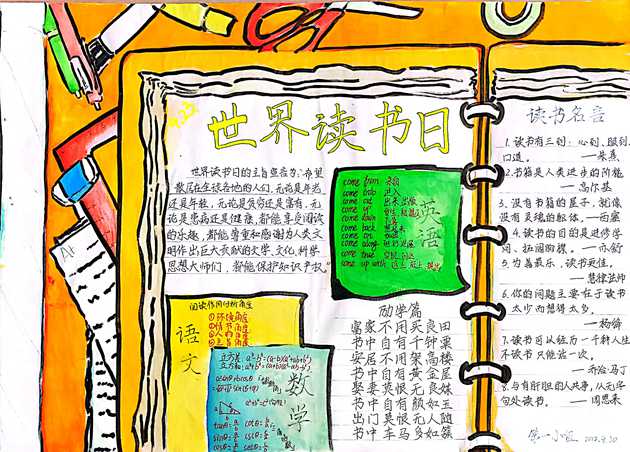 4.23
世界读书日
世界读书日的主旨宣言为：“希望
散居在全球各地的人们，无论是年老
还是年轻，无论是贫穷还是富有，无
论是患病还是健康，都能享受阅读
的乐趣，都能尊重和感谢为人类文
明作出巨大贡献的文学、文化、科学
思想大师们，都能保护知识产权。”
英语
come from 来自
come up
come down
come back
come on
come along
come true
come up with
阅读作用分析角度
①环境角度
②情节角度
③人物角度
④主旨角度
语文
立方差 a³-b³=(a-b)(a²+ab+b²)
数学
励学篇
富家不用买良田
书中自有千钟粟
安居不用架高楼
书中自有黄金屋
娶妻莫恨无良媒
书中自有颜如玉
出门莫恨无人随
书中车马多如簇
读书名言
1.读书有三到：心到、眼到、
口道。 ——朱熹
2.书籍是人类进步的阶梯
——高尔基
3.没有书籍的屋子，就像
没有灵魂的躯体。——西塞
4.读书的目的是进修学
问，拓阔胸襟。——亦舒
5.为善最乐，读书更佳。
——慧律法师
6.你的问题主要在于读书
太少而想得太多。
——杨绛
7.读书可以经历一千种人生
不读书只能活一次。
——乔治·马丁
8.与有肝胆的人共事，从无字
句处读书。 ——周恩来